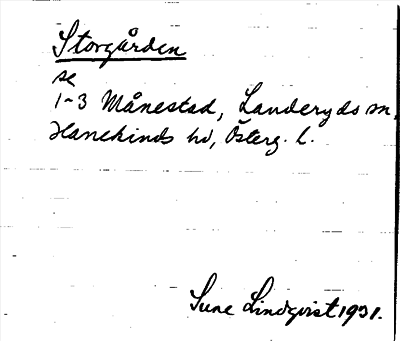 Storgården
se
1-3 Månestad, Landeryds sn,
Hanekinds hd, Österg. l.
Sune Lindqvist 1931.